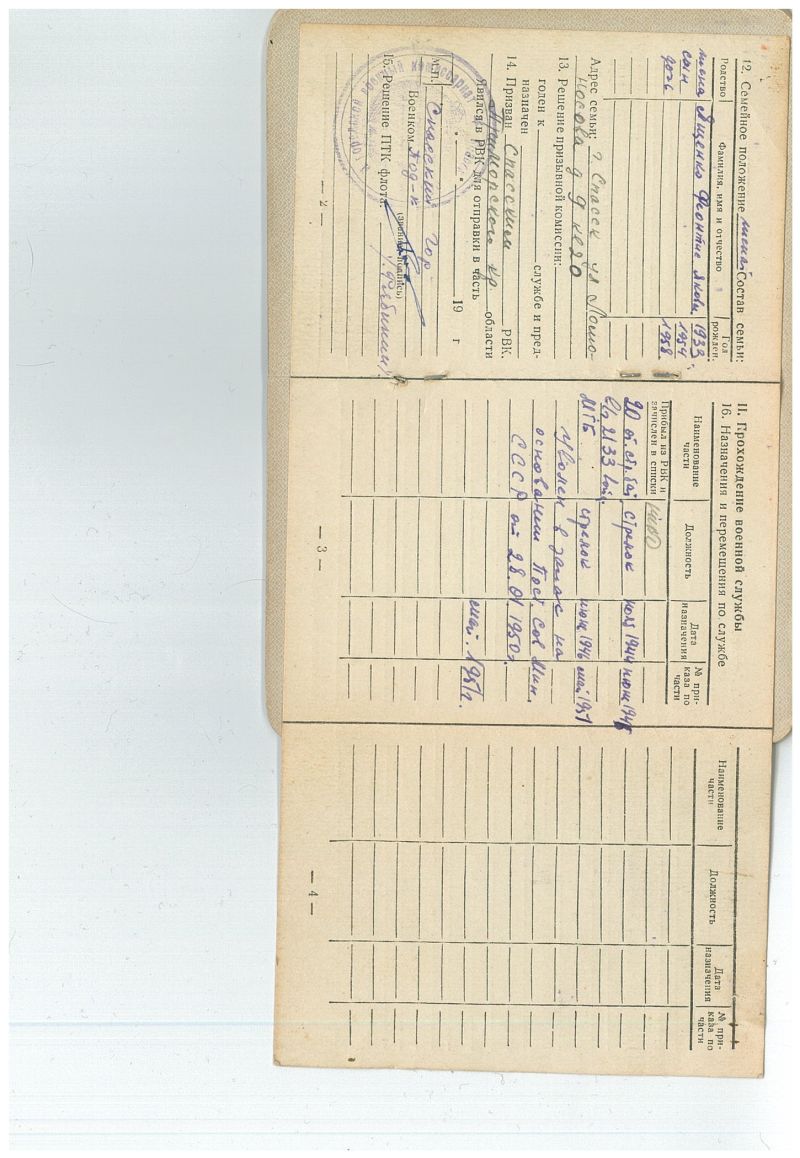 12. Семейное положение женат Состав семьи:
Родство Фамилия, имя и отчество Год рожден.
жена Ященко 1933
сын 1954
дочь 1958
Адрес семьи: г. Спасск ул Ломо-
носова д 9 кв 20
13. Решение призывной комиссии:
годен к службе и пред-
назначен
14. Призван Спасским РВК.
Приморского кр. области
явился в РВК для отправки в часть
" . " . 19 г
М.П. Спасский гор
Военком Под-к
(звание, подпись)
15. Решение ПТК флота:
— 2 —
II. Прохождение военной службы
16. Назначения и перемещения по службе
Наименование части Должность Дата назначения № приказа по части
Прибыл из РВК и
зачислен в списки
20 стрелок 1944 июн 1946
2133
МГБ стрелок июн 1946 май 1951
Уволен в запас на
основании Пост. Сов Мин.
СССР от 28.01 1950г.
май. 1951г.
— 3 —
Наименование части Должность Дата назначения № приказа по части
— 4 —